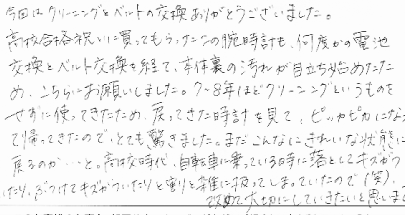 今回はクリーニングとベルトの交換ありがとうございました。
高校合格祝いに買ってもらったこの腕時計も、何度かの電池
交換とベルト交換を経て、本体裏の汚れが目立ち始めたた
め、こちらにお願いしました。7〜8年ほどクリーニングというものを
せずに使ってきたため、戻ってきた時計を見て、ピッカピカになっ
て帰ってきたので、とても驚きました。まだこんなにきれいな状態に
戻るのか…と。高校時代、自転車に乗っている時に落としてキズがつ
いたり、ぶつけてキズがついたりと割と雑に扱ってしまっていたので(笑)、
改めて大切にしていきたいと思いま